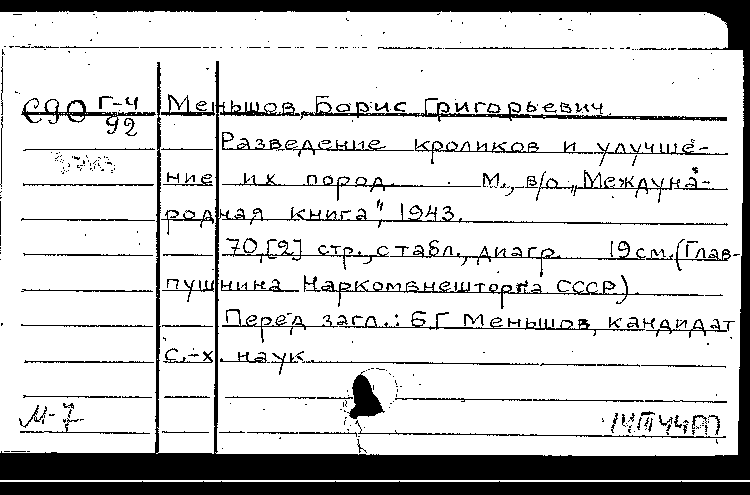 Г-4
92
Меньшов, Борис Григорьевич.
Разведение кроликов и улучше-
ние их пород. М., в/о „Междуна-
родная книга", 1943.
70,[2] стр., с табл., диагр. 19 см. (Глав-
пушнина Наркомвнешторга СССР).
Перед загл.: Б.Г. Меньшов, кандидат
с.-х. наук.
М-7